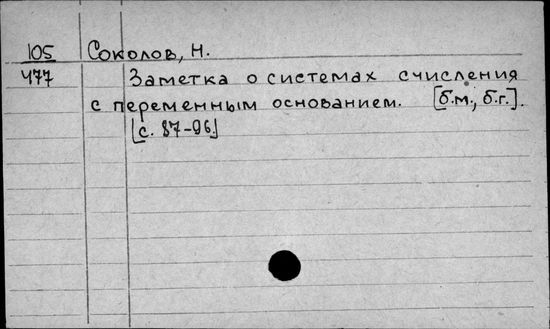 105 Соколов, Н.
477 Заметка о системах счисления
с переменным основанием. [б.м., б.г.].
[с. 87-96]